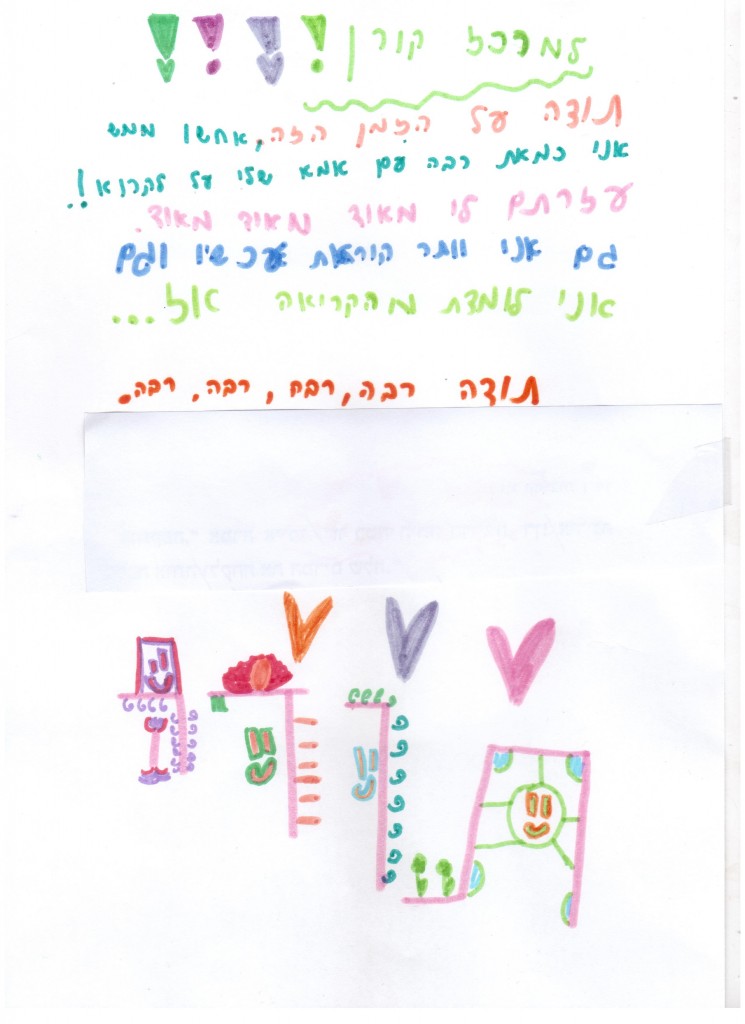 למרכז קורן !!!!
תודה על הזמן הזה, אחשו ממש
אני כמאת רבה עם אמא שלי על לקרוא!.
עזרתם לי מאוד מאוד מאוד.
גם אני וותר קוראת עכשיו וגם
אני לומדת מהקריאה אז...
תודה רבה, רבה, רבה, רבה.
תודה